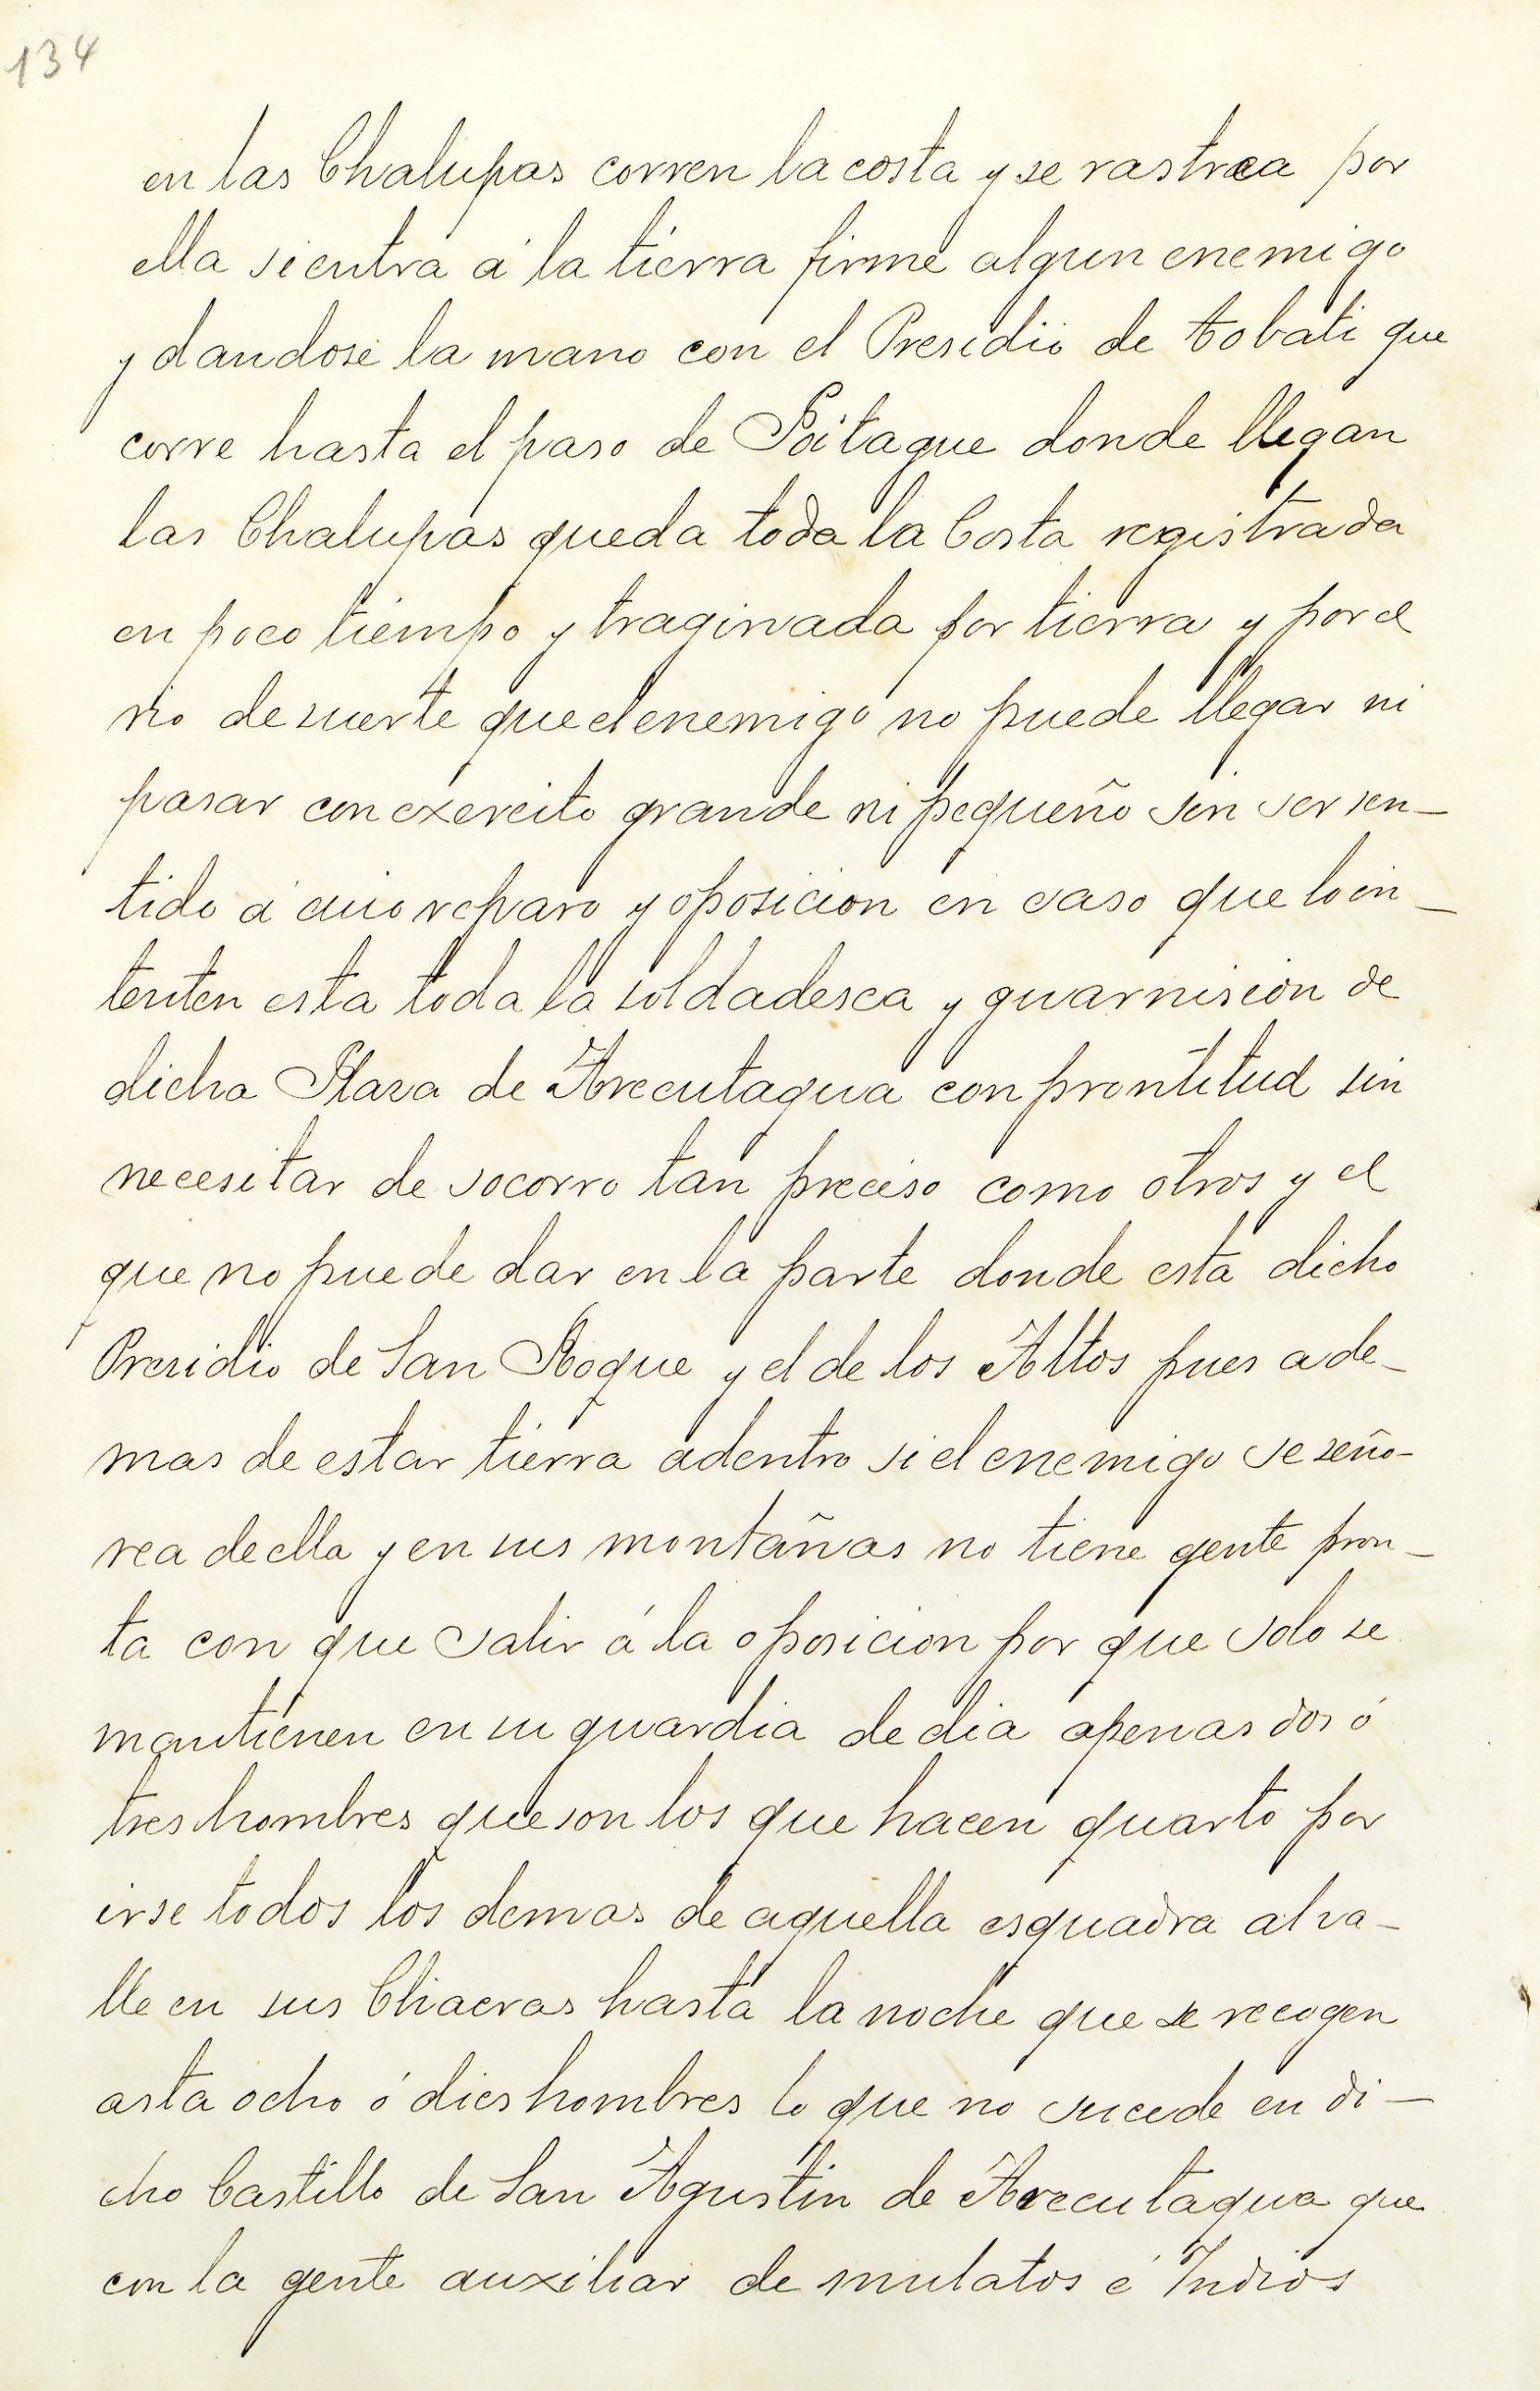 134
en las Chalupas corren la costa y se rastrea por
ella si entra á la tierra firme algun enemigo
y dandose la mano con el Presidio de tobati que
corre hasta el paso de Poitague donde llegan
las Chalupas queda toda la Costa registrada
en poco tiempo y traginada por tierra y por el
rio de suerte que el enemigo no puede llegar ni
pasar con exercito grande ni pequeño sin ser sen-
tido á cuio reparo y oposicion en caso que lo in-
tenten esta toda la soldadesca y guarnision de
dicha Plaza de Arecutagua con prontitud sin
necesitar de socorro tan preciso como otros y el
que no puede dar en la parte donde esta dicho
Presidio de San Roque y el de los Altos pues ade-
mas de estar tierra adentro si el enemigo se seño-
rea de ella y en sus montañas no tiene gente pron-
ta con que salir á la oposicion por que solo se
mantienen en su guardia de dia apenas dos ó
tres hombres que son los que hacen quarto por
irse todos los demas de aquella esquadra al va-
lle en sus Chacras hasta la noche que se recogen
asta ocho ó dies hombres lo que no sucede en di-
cho Castillo de San Agustin de Arecutagua que
con la gente auxiliar de mulatos é Indios